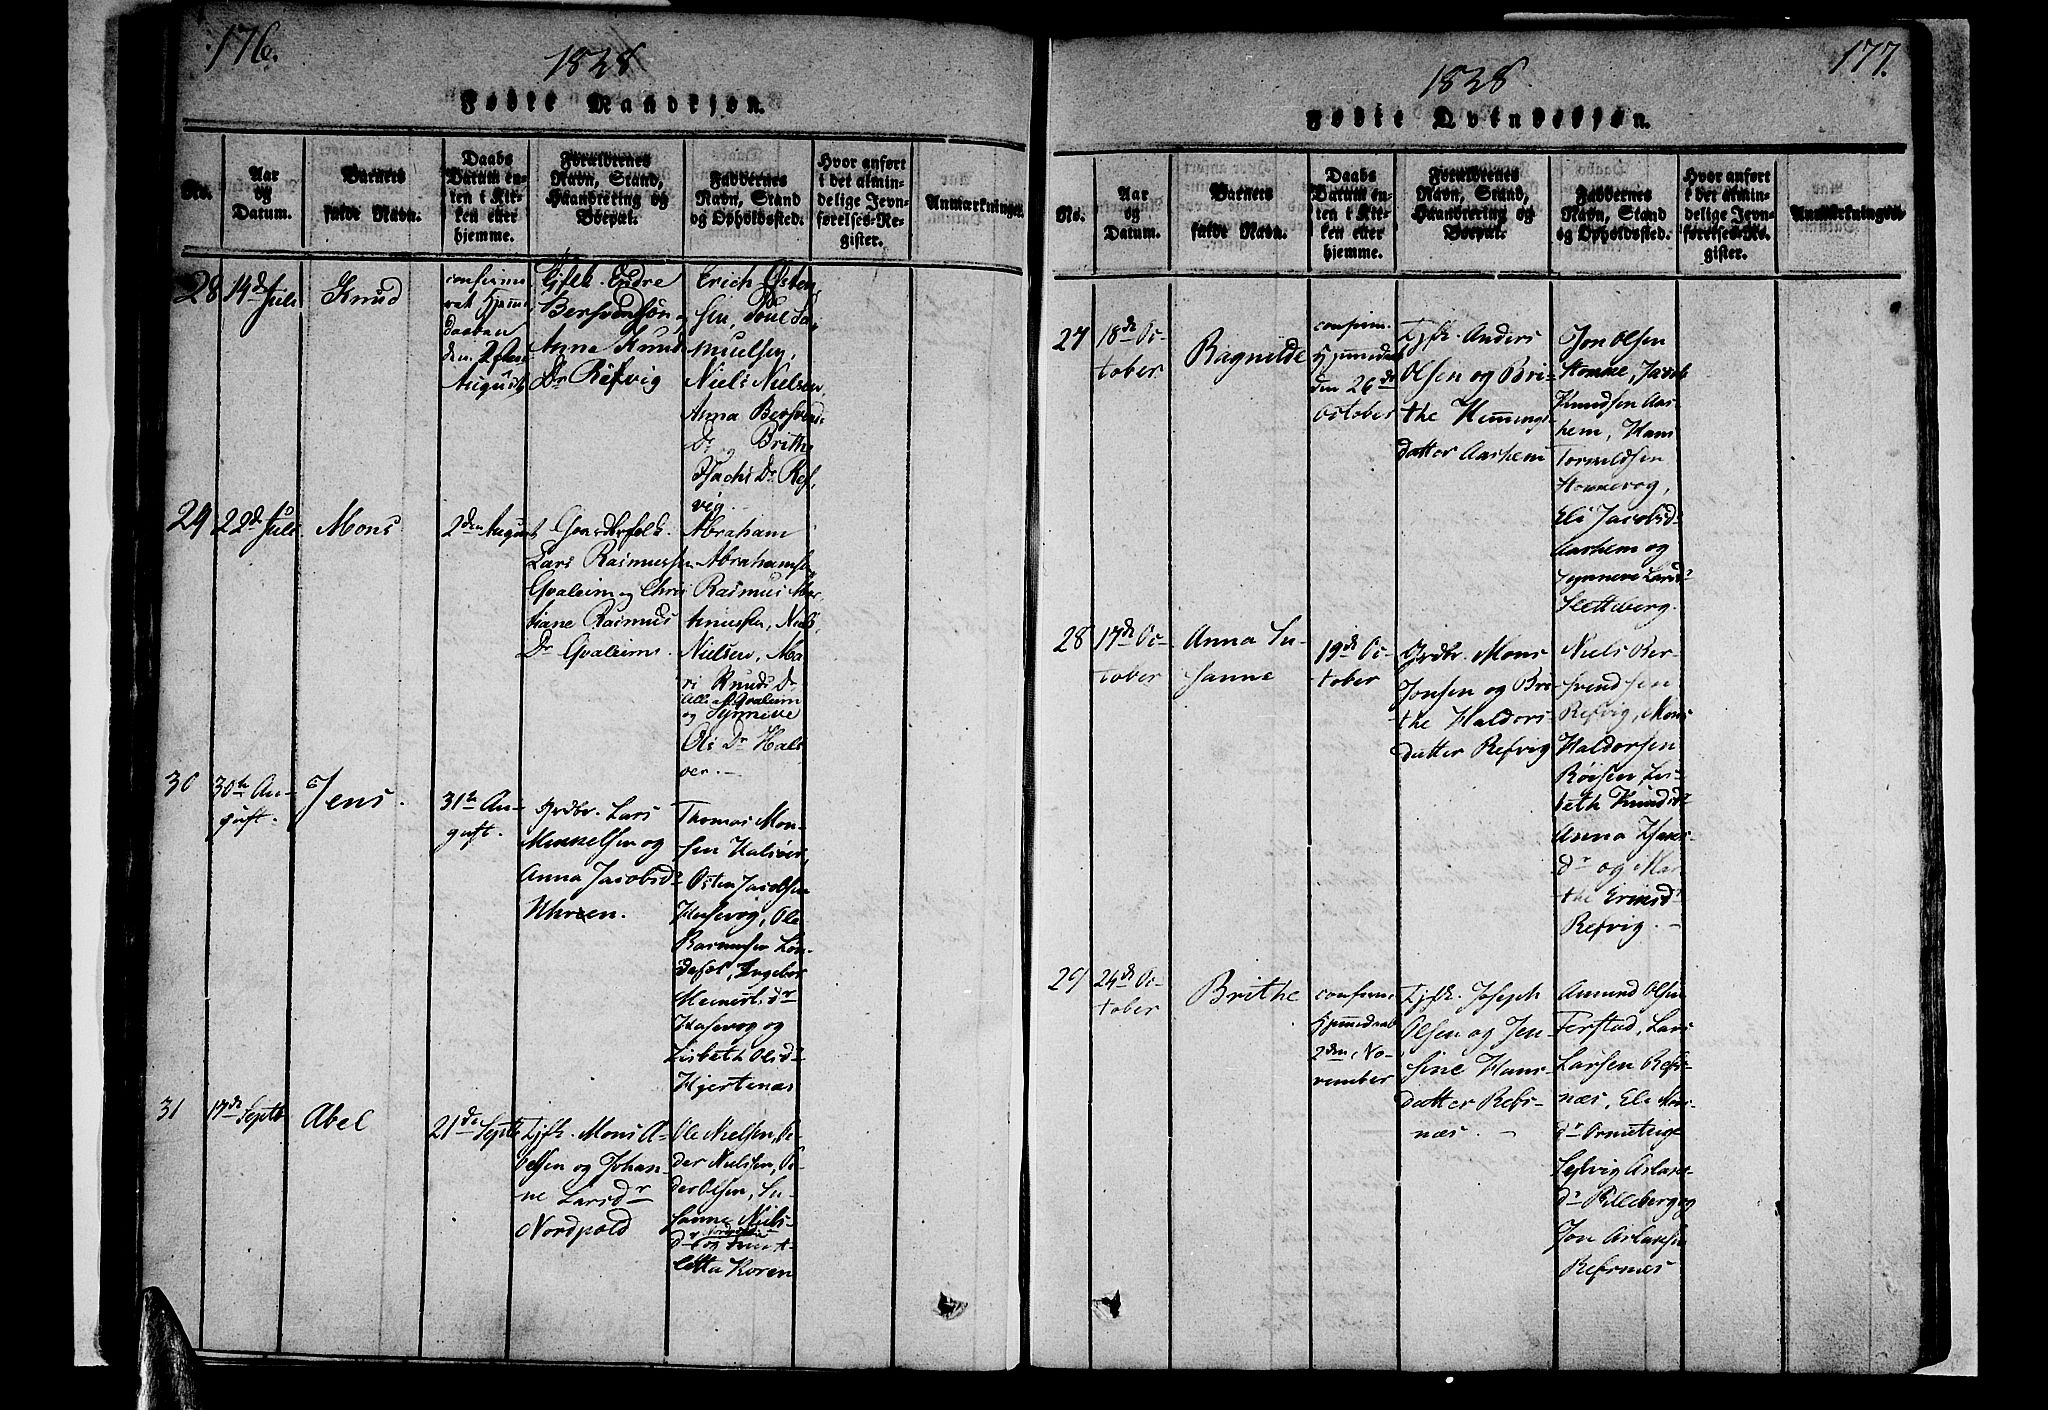 176.
1828
Fødte Mandkjøn.
No.
Aar
og
Datum.
Barnets
fulde Navn.
Daabs
Datum en-
ten i Kir-
ken eller
hjemme.
Forældrenes
Navn, Stand,
Haandtering og
Boepæl.
Faddernes
Navn, Stand
og Opholdssted.
Hvor anført
i det almin-
delige Jevn-
førelses-Re-
gister.
Anmærkninger.
28
14de Juli
Knud
confirme
rat Hjemme
daaben
den 2den
August
Endre
Bersvendsøn
Anna Knud
Dr Refvig
Erich Østen
sen, Poul Sa
muelsen,
Niels Nielsen,
Anna Bersvend
Dr Brithe
Isachs Dr Ref
vig.
29
22de Juli
Mons
2den August
Gaardfolk
Lars Rasmussen
Qvaleim og Chris
tiane Rasmus
Dr Qvaleim.
Abraham
Abrahamsen,
Rasmus Mor
tinussen, Niels
Nielsen, Ma
ri Knuds Dr
Alle af Qvaleim
og Synneve
Ols Dr Hals
øer.
30
30te Au-
gust.
Jens.
31te Au-
gust.
Grdbr. Lars
Monnelsen og
Anna Jacobsdr
Uhreen.
Thomas Mon-
sen Halsøer,
Osten Jacobsen
Husevog, Ole
Rasmusen
Ingebor
dr
Husevog og
Lisbeth Olsdr
Hjertenæs
31
17de Septb
Abel
21de Septb
Ijfk. Mons A-
belsen og Johan-
ne Larsdr
Nordpold
Ole Nielsen, Pe-
der Nielsen, Pe-
der Olsen, Su-
sanne Niels-
dr Nordpold
letta Koren
177.
1828
Fødte Qvindekjøn.
No.
Aar
og
Datum.
Barnets
fulde Navn.
Daabs
Datum en-
ten i Kir-
ken eller
hjemme.
Forældrenes
Navn, Stand,
Haandtering og
Boepæl.
Faddernes
Navn, Stand
og Opholdssted.
Hvor anført
i det almin-
delige Jevn-
førelses-Re-
gister.
Anmærkninger
27
18de Oc-
tober
Ragnilde
confirm.
Hjemmedaab
den 26de
October
Ijfk. Anders
Olsen og Bri-
the Hemings
datter Aarhem
Jon Olsen
Homme, Jacob
Knudsen Aar-
hem, Hans
Tormodsen
Hommevog,
Eli Jacobsdr
Aarhem og
Synneve Larsdr
Sletteberg.
28
17de Oc-
tober
Anna Su-
sanne
19de Oc-
tober
Grdbr. Mons
Jonsen og Bri-
the Haldors-
datter Refvig
Niels Ber-
svendsen
Refvig, Mons
Haldorsen
Røisen Lis-
beth Knudsdr
Anna Hans-
dr og Mar
the Erimsdr
Refvig.
29
24de Oc-
tober
Brithe
confirm.
Hjemmedaab
2den No-
vember
Ijfk. Joseph
Olsen og Jen-
sine Hans-
datter Refs-
næs.
Amund Olsen
Ferstad, Lars
Larsen Refs-
næs, Eli
dr Ormuteige
Sylvig Aslaks
dr Pilleberg og
Jon Aslaksen
Refsnæs